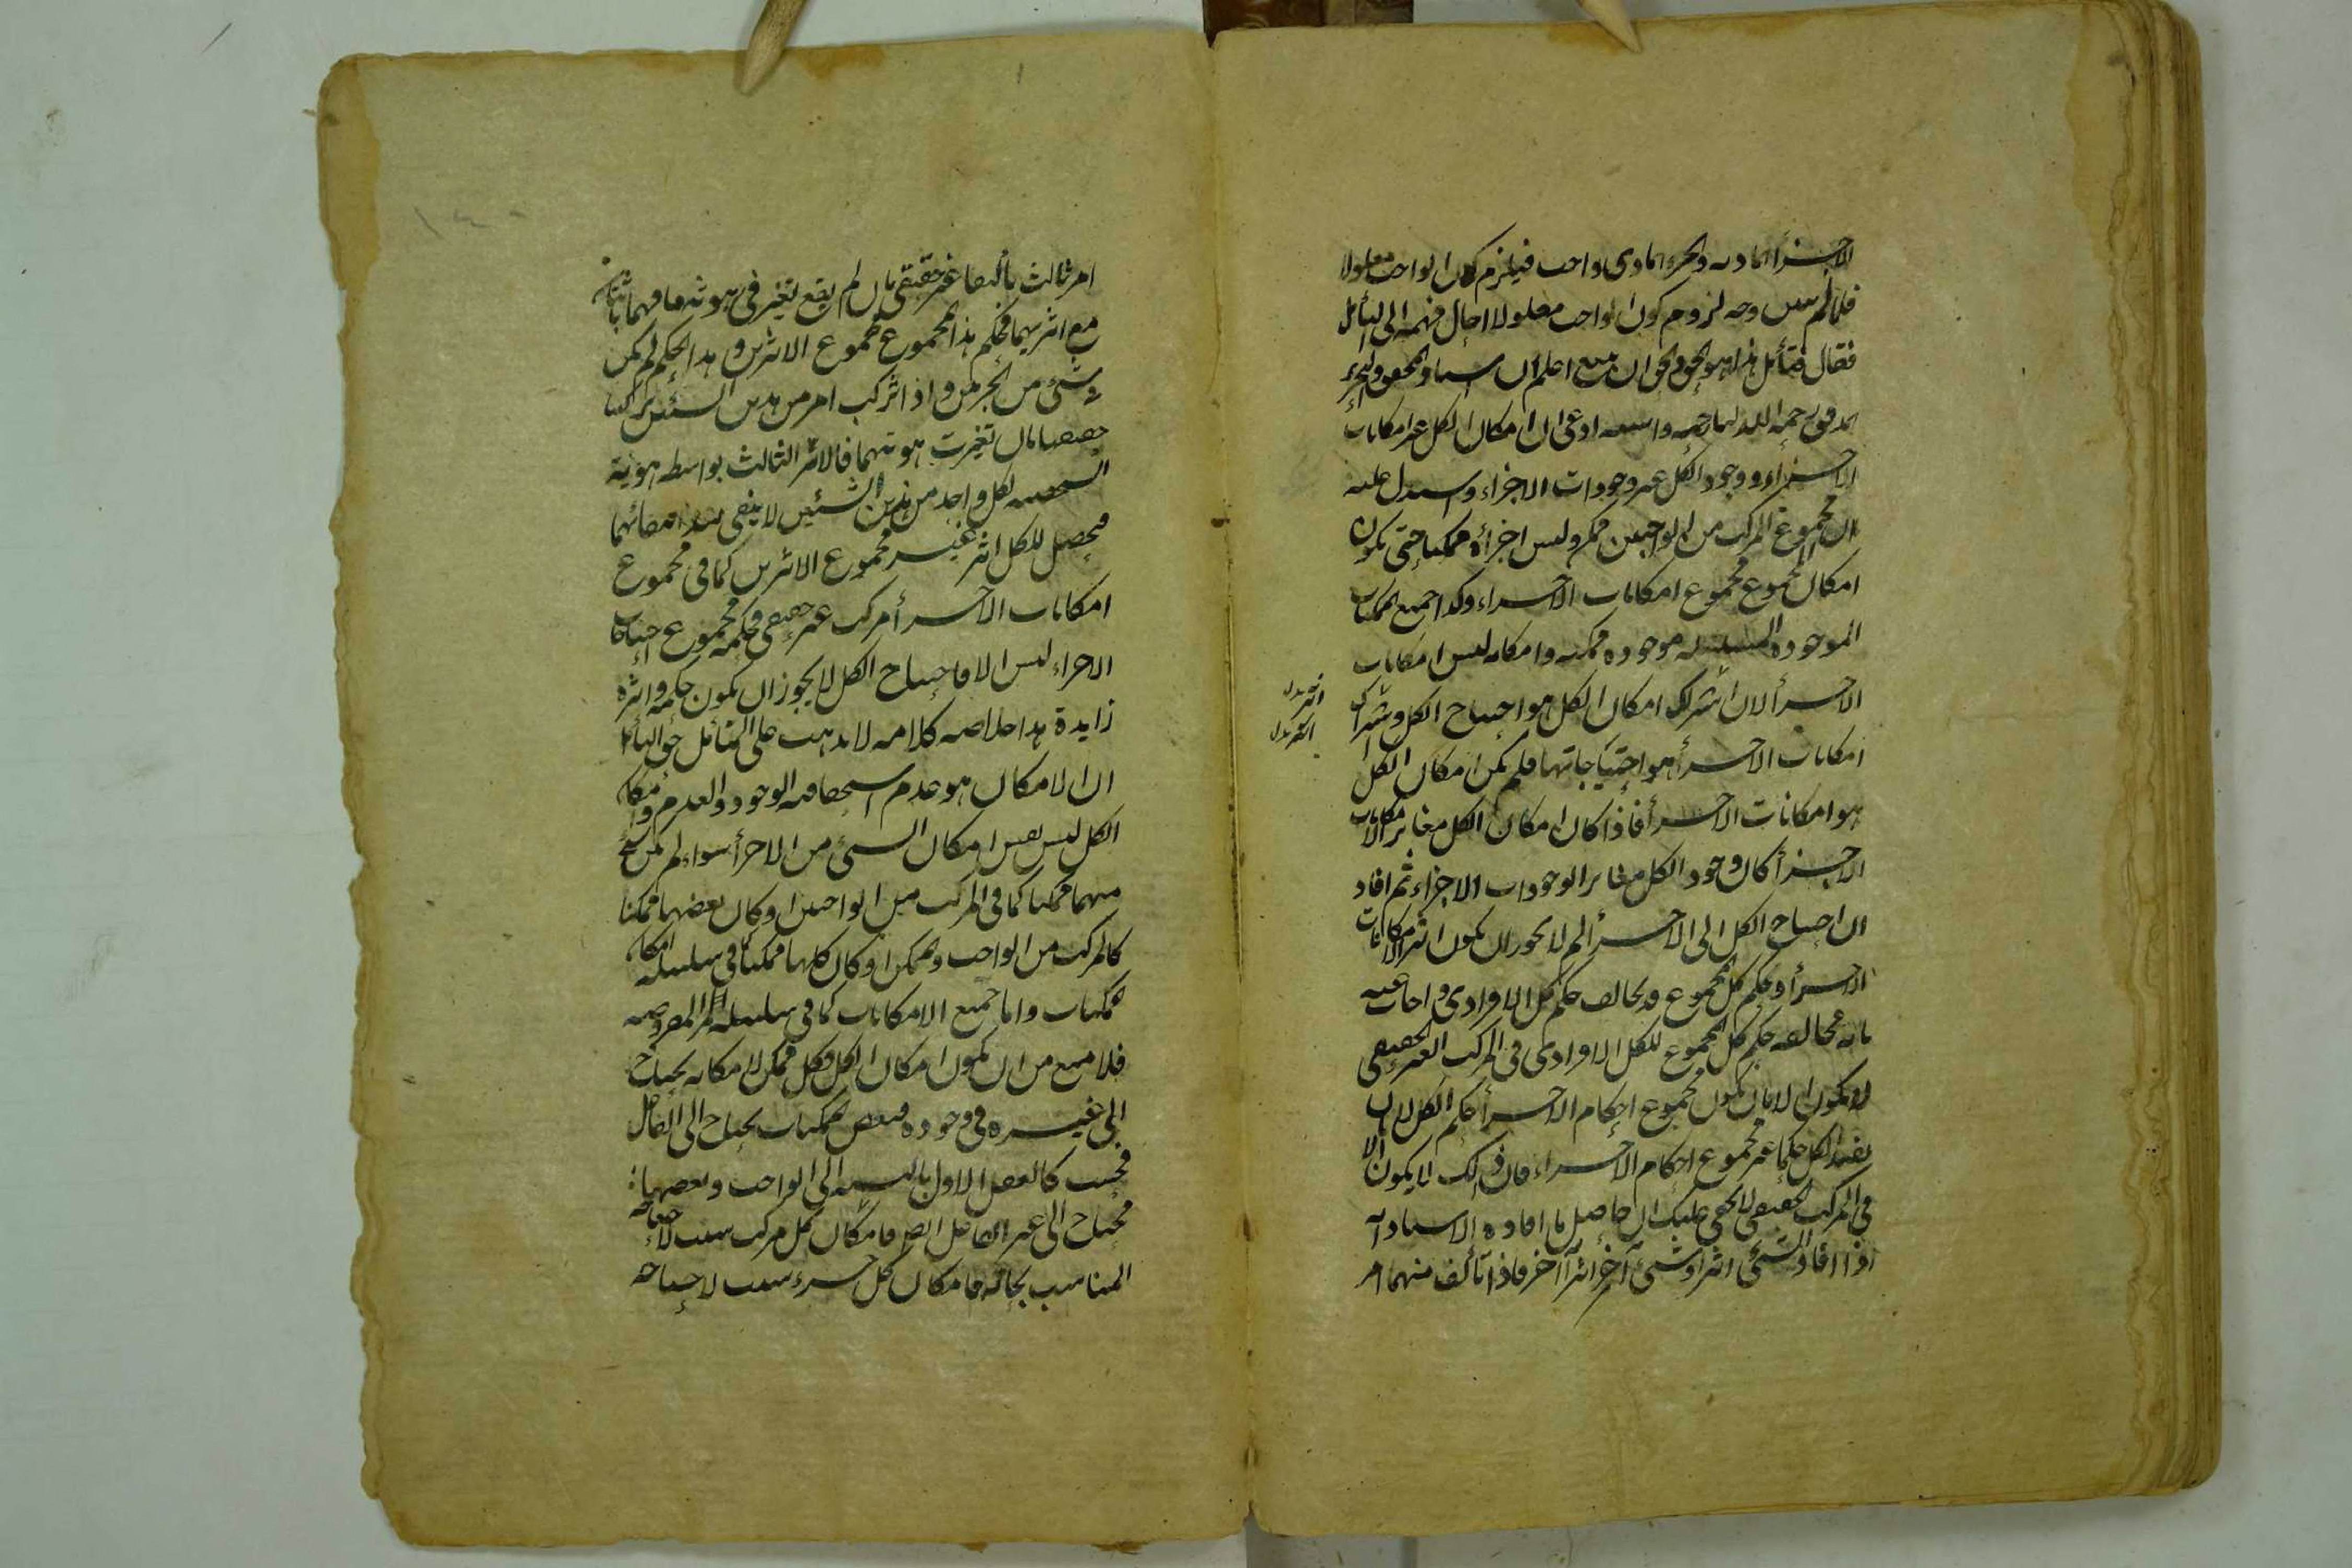 الاجزأ المادية والجزء المادى واحب فيلزم كون الواحب معلولا
فلما لم يبين وجه لزوم كون الواحب معلولا احال فهمه الى التأمل
فقال فتأمل هذا هو الحق والحق ان يتبع اعلم ان استاد المحقق والنحرير
المدقق رحمه الله ادعى ان امكان الكل غير امكانات
الاجزاء ووجود الكل غير وجودات الاجزاء واستدل عليه
ان مجموع المركب من الواجبين ممكن وليس اجزاؤه ممكنا حتى يكون
امكان المجموع مجموع امكانات الاجزاء وكذا جميع الممكنات
الموجودة المتسلسلة موجودة ممكنة وامكانه ليس امكانات
الاجزأ لان اثر امكان الكل هو احتياج الكل واثر
امكانات الاجزأ هو احتياجاتها فلم يكن امكان الكل
هو امكانات الاجزأ فاذا كان امكان الكل مغايرا لامكانات
الاجزأ كان وجود الكل مغايرا لوجودات الاجزاء ثم افاد
ان احتياج الكل الى الاجزأ لم لا يجوز ان يكون اثر الامكانات
الاجزأ وحكم كل المجموع قد يخالف حكم كل الافرادى واجاب عنه
بانه مخالفة حكم كل المجموع للكل الافرادى فى المركب الغير الحقيقى
لا يكون الا بان يكون مجموع احكام الاجزأ حكم الكل لا ان
يفيد الكل حكما غير مجموع احكام الاجزاء فان ذلك لا يكون الا
فى المركب الحقيقى لا يخفى عليك ان حاصل ما افاده الاستاد انه
اذا افاد الشئ اثرا وشئ آخر اثرا آخر فاذا تألف منهما امر
امر ثالث تأليفا غير حقيقى بان لم يقع تغير فى هويتهما فهما
مع اثريهما فحكم هذا المجموع مجموع الاثرين وهذا الحكم لم يكن
فى شئ من الجزئين واذا تركب امر من هذين الشيئين تركيبا
حقيقيا بان تغيرت هويتهما فالامر الثالث بواسطه هويته
الشخصية لكل واحد من هذين الشئين لا يبقى
فحصل للكل اثر غير مجموع الاثرين كما فى مجموع
امكانات الاجزأ مركب غير حقيقى فحكمه مجموع احتياجات
الاجزاء ليس الا فاحتياج الكل لا يجوز ان يكون حكمه واثره
زايدة هذا خلاصه كلامه لا يذهب على المتأمل
ان الامكان هو عدم استحقاقية الوجود والعدم وامكان
الكل ليس نفس امكان الشئ من الاجزأ سواء لم يكن شئ
منهما ممكنا كما فى المركب من الواجبين او كان بعضها ممكنا
كالمركب من الواحب والممكن او كان كلها ممكنا كما فى سلسله
الممكنات واما جميع الامكانات كما فى سلسله المفروضه
فلا منع من ان يكون امكان الكل فكل ممكن لامكانه يحتاج
الى غيره فى وجوده فبعض الممكنات يحتاج الى الفاعل
فحسب كالعقل الاول بالنسبه الى الواحب وبعضها
محتاج الى غير الفاعل ايضا فامكان كل مركب سبب لاحتياجه
المناسب بحاله فامكان كل جزء سبب لاحتياجه